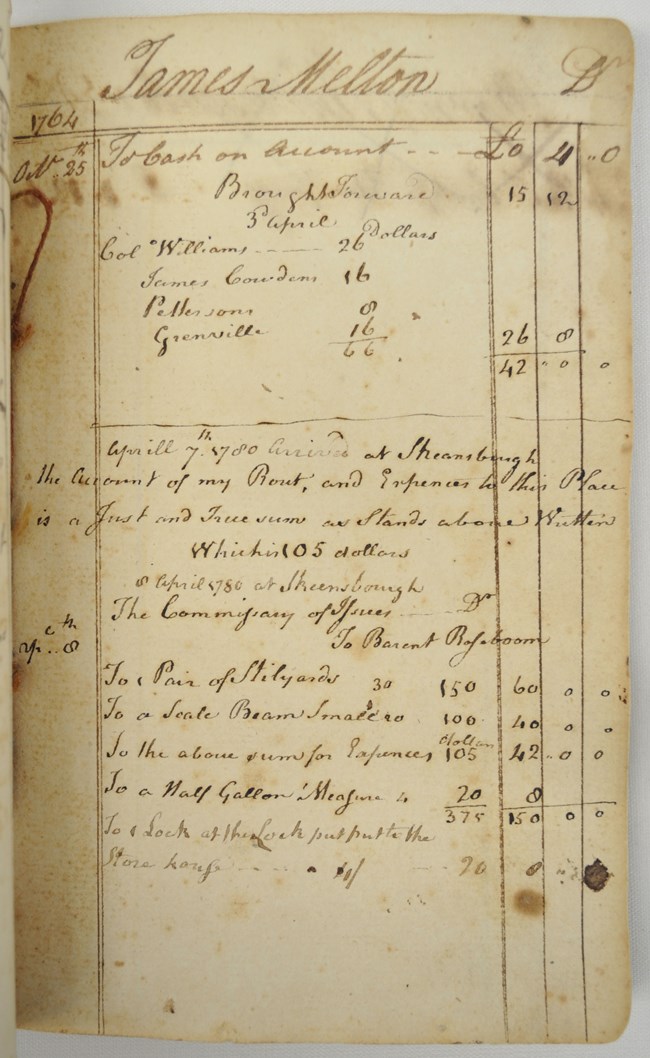 James Melton Dr
1764
Octr. 25th To Cash on Account - - £0 4 "0
Brought Forward 15 12
3d April
Colo Williams - - - 26 Dollars
James Cowdens 16
Pettersons 8
Grenville 16 26 8
66 42 " 0 0
Aprill 7th. 1780 arrived at Skeansbourgh
the Account of my Rout, and Expences to this Place
is a Just and True sum as Stands above Written
Which is 105 dollars
8 April 1780 at Skeensbourgh
The Commissary of Issues - - Dr
To Barent Roseboom
Ap. 8th
To 1 Pair of Stilyards 30 150 60 0 0
To a Scale Beam Small 20 100 40 0 0
To the above sum for Expences dollars 105 42 " 0 0
To a Half Gallon Measure 4 20 8
375 150 0 0
To 1 Lock at the Lock put put to the
Store house - - - - 4/ - 20 8